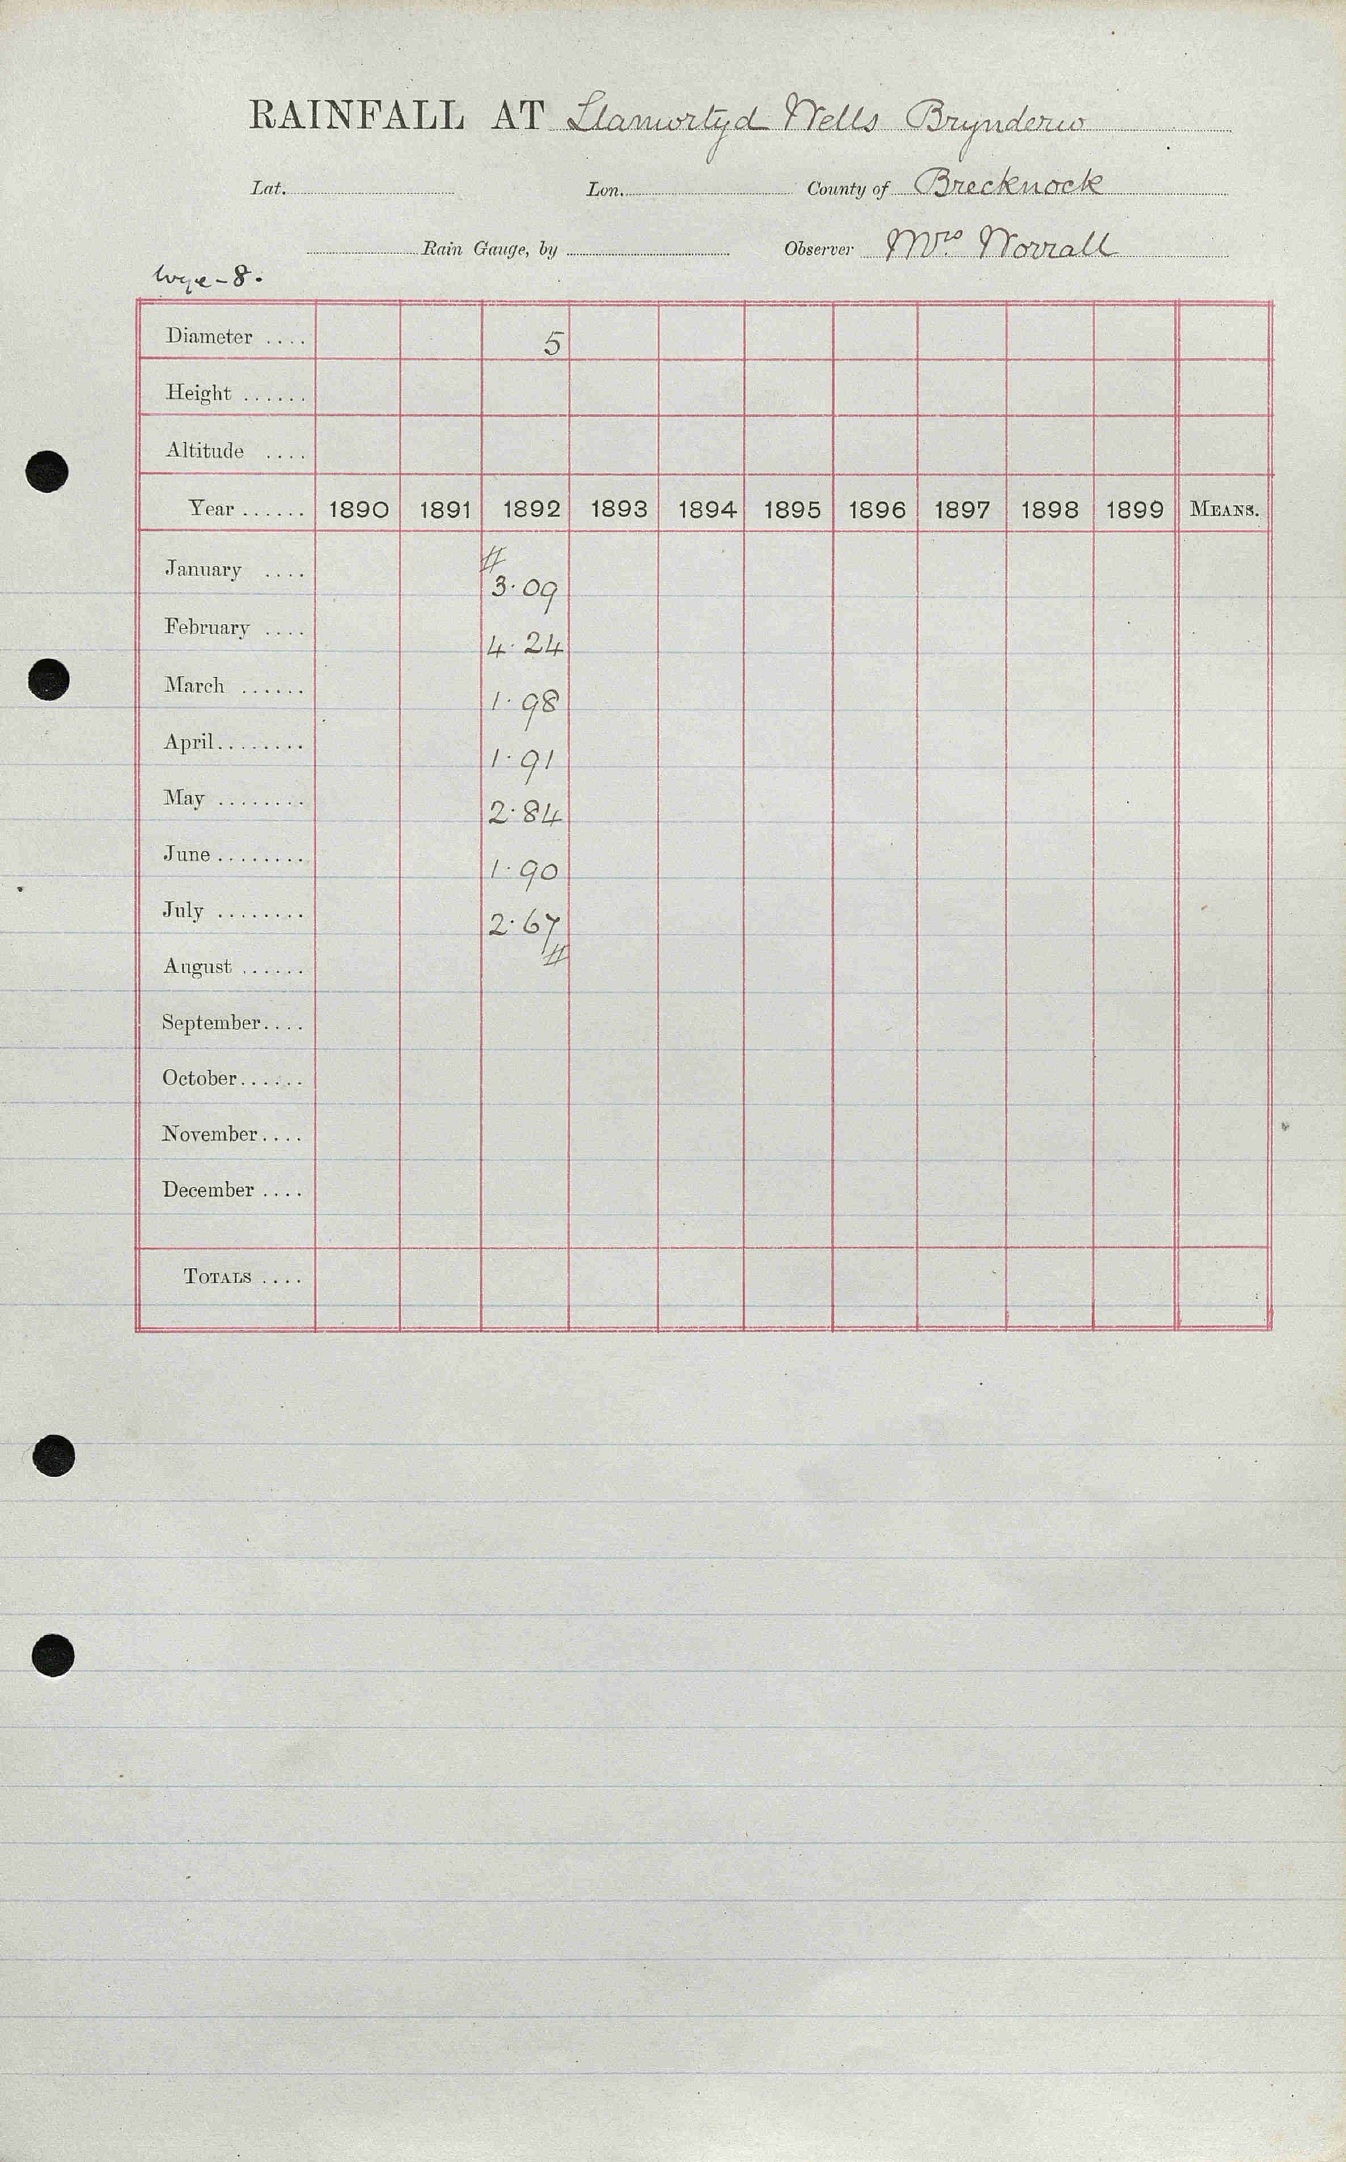 RAINFALL AT Llanwrtyd Wells Brynderw
Lat. Lon. County of Brecknock
Rain Gauge, by Observer Mrs. Worrall
Wye-8.
Diameter .... 5
Height ......
Altitude ....
Year ...... 1890 1891 1892 1893 1894 1895 1896 1897 1898 1899 MEANS.
January .... # 3.09
February .... 4.24
March ...... 1.98
April........ 1.91
May ........ 2.84
June ........ 1.90
July ........ 2.67 #
August ......
September....
October......
November....
December ....
TOTALS ....